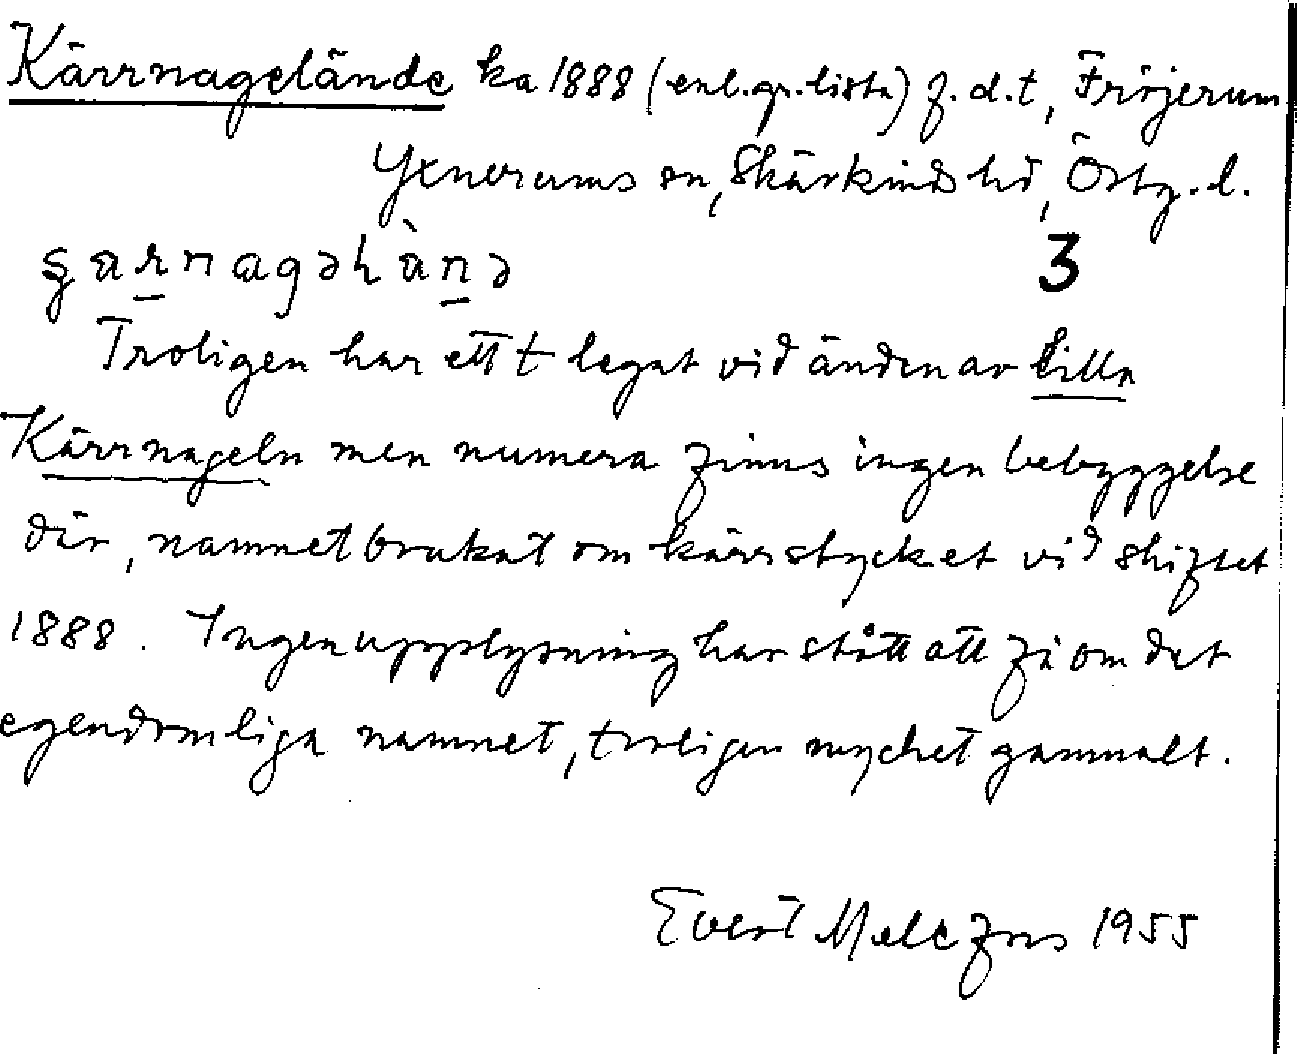 Kärrnagelände ka 1888 (enl. gr. lista) f. d. t, Fröjerum
Yxnerums sn, Skärkinds hd, Östg. l.
3
Troligen har ett t legat vid änden av Lilla
Kärrnageln men numera finns ingen bebyggelse
där, namnet brukat om kärrstycket vid skiftet
1888. Ingen upplysning har stått att få om det
egendomliga namnet, troligen mycket gammalt.
Evert Melefors 1955